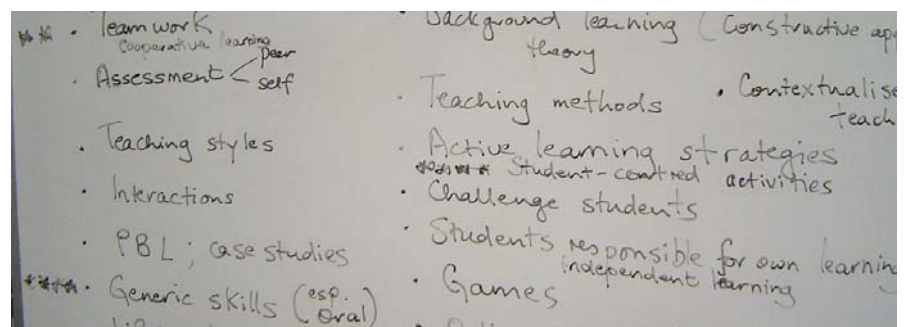 ** • Teamwork
cooperative learning
• Assessment < peer
self
• Teaching styles
• Interactions
• PBL; case studies
**** • Generic skills (esp. oral)
• Background learning (Constructive
theory
• Teaching methods
• Contextualise
teach
• Active learning strategies
***** Student-centred activities
• Challenge students
• Students responsible for own learning
independent learning
• Games